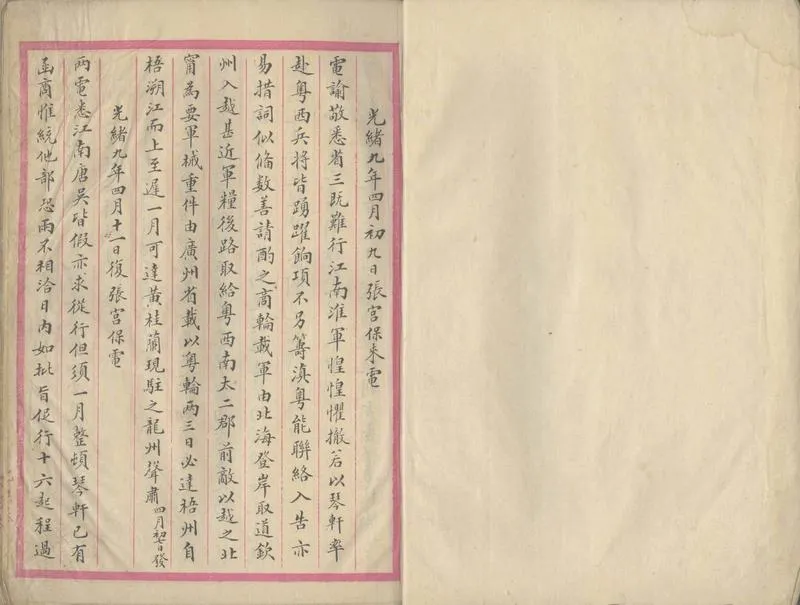 光緒九年四月初九日張宮保來電
電諭敬悉省三既難行江南淮軍惶惶懼撤若以琴軒率
赴粵西兵將皆踴躍餉項不另籌滇粵能聯絡入告亦
易措詞似條數善請酌之商輪載軍由北海登岸取道欽
州入越甚近軍糧後路取給粵西南太二郡前敵以越之北
甯為要軍械重件由廣州省載以粵輪兩三日必達梧州自
梧溯江而上至遲一月可達黃桂蘭現駐之龍州聲肅四月初七日發
光緒九年四月十一日復張宮保電
兩電悉江南唐吳皆假亦求從行但須一月整頓琴軒已有
函商惟統他部恐兩不相洽日內如批旨促行十六起程過